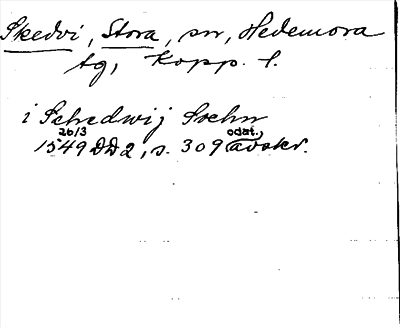 Skedvi, Stora, sn, Hedemora
tg, Kopp. l.
i Schedwij Sochn
26/3 odat.
1549 DD2, s. 309 avskr.